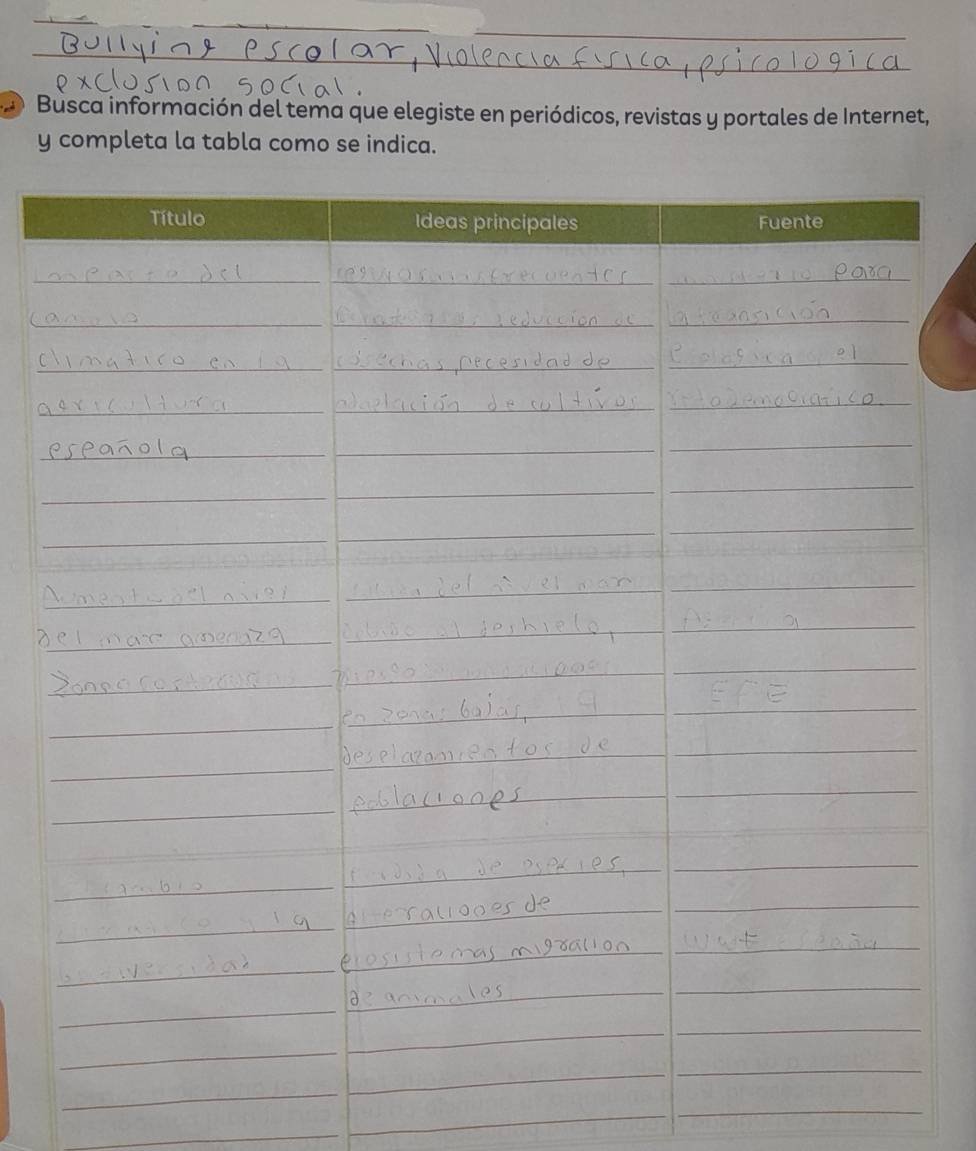 Bullying escolar, Violencia fisica, psicologica
exclusion social.
Busca información del tema que elegiste en periódicos, revistas y portales de Internet,
y completa la tabla como se indica.
Título
Ideas principales
Fuente
impacto del
cambio
climatico en la
agricultura
española
reduccion de
cosechas, necesidad de
adaptación de cultivos
para
la transición
el
Aumento del nivel
del mar amenaza
zonas costeras
del nivel mar
debido al deshielo,
en zonas bajas,
deselazamientos de
poblaciones
EFE
cambio
y la
biodiversidad
perdida de especies,
alteraciones de
ecosistemas migracion
de animales
España